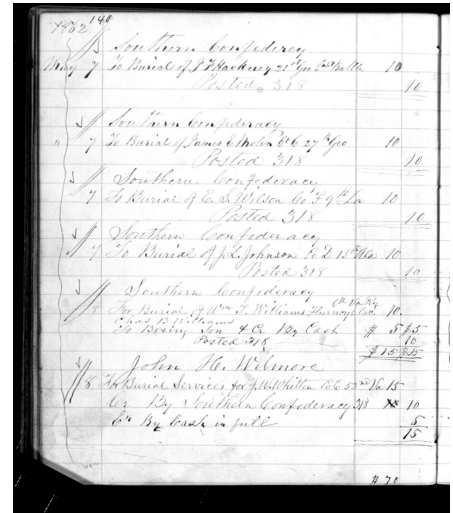 1862 140
Southern Confederacy
May 7 To Burial of Hackney 21st Geo Batt 10
Posted 318 10
Southern Confederacy
" 7 To Burial of James E Co C 27th Geo 10
Posted 318 10
Southern Confederacy
7 To Burial of E. L. Wilson Co F 9th La 10
Posted 318 10
Southern Confederacy
7 To Burial of J. L. Johnson Co D 15th Ala 10
Posted 318 10
Southern Confederacy
8 For Burial of Wm T. Williams 10
Chas B Williams
To Boxing Son & Cr By Cash $ 5 $5
Posted 318 10
$ 15 $15
John H. Wilmore
8 To Burial Services for J. W. Whitten Co C 50nd Va 15
Cr By Southern Confederacy 318 10
Cr By Cash in full 5
15
$ 70